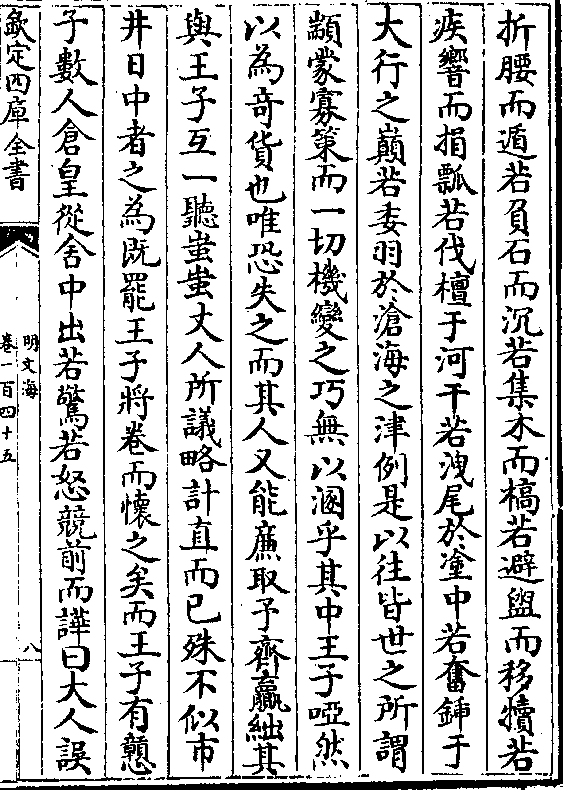 折腰而遁若負石而沉若集木而槁若避盥而移犢若
疾響而捐瓢若伐檀于河干若洩尾於塗中若奮鍤于
大行之巔若委羽於滄海之津例是以往皆世之所謂
顓蒙寡策而一切機變之巧無以溷乎其中王子啞然
以為奇貨也唯恐失之而其人又能廉取予齊贏絀其
與王子互一聽蚩蚩丈人所議略計直而已殊不似市
井日中者之為既罷王子將卷而懷之矣而王子有戇
子數人倉皇從舍中出若驚若怒競前而譁曰大人誤
欽定四庫全書
明文海
卷一百四十五
八